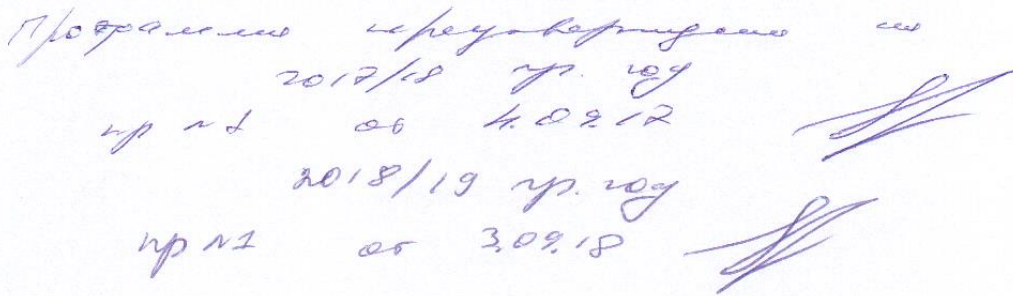 Программа переутверждена на
2017/18 уч. год
пр №1 от 4.09.17
2018/19 уч. год
пр №1 от 3.09.18